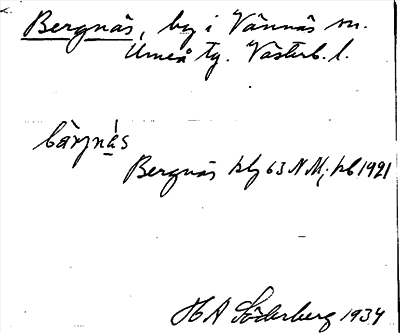 Bergnäs, by i Vännäs sn.
Umeå tg. Västerb. l.
bæ̀rŋnä́s
Bergnäs klj 63 NM; kb 1921
H A Söderberg 1934